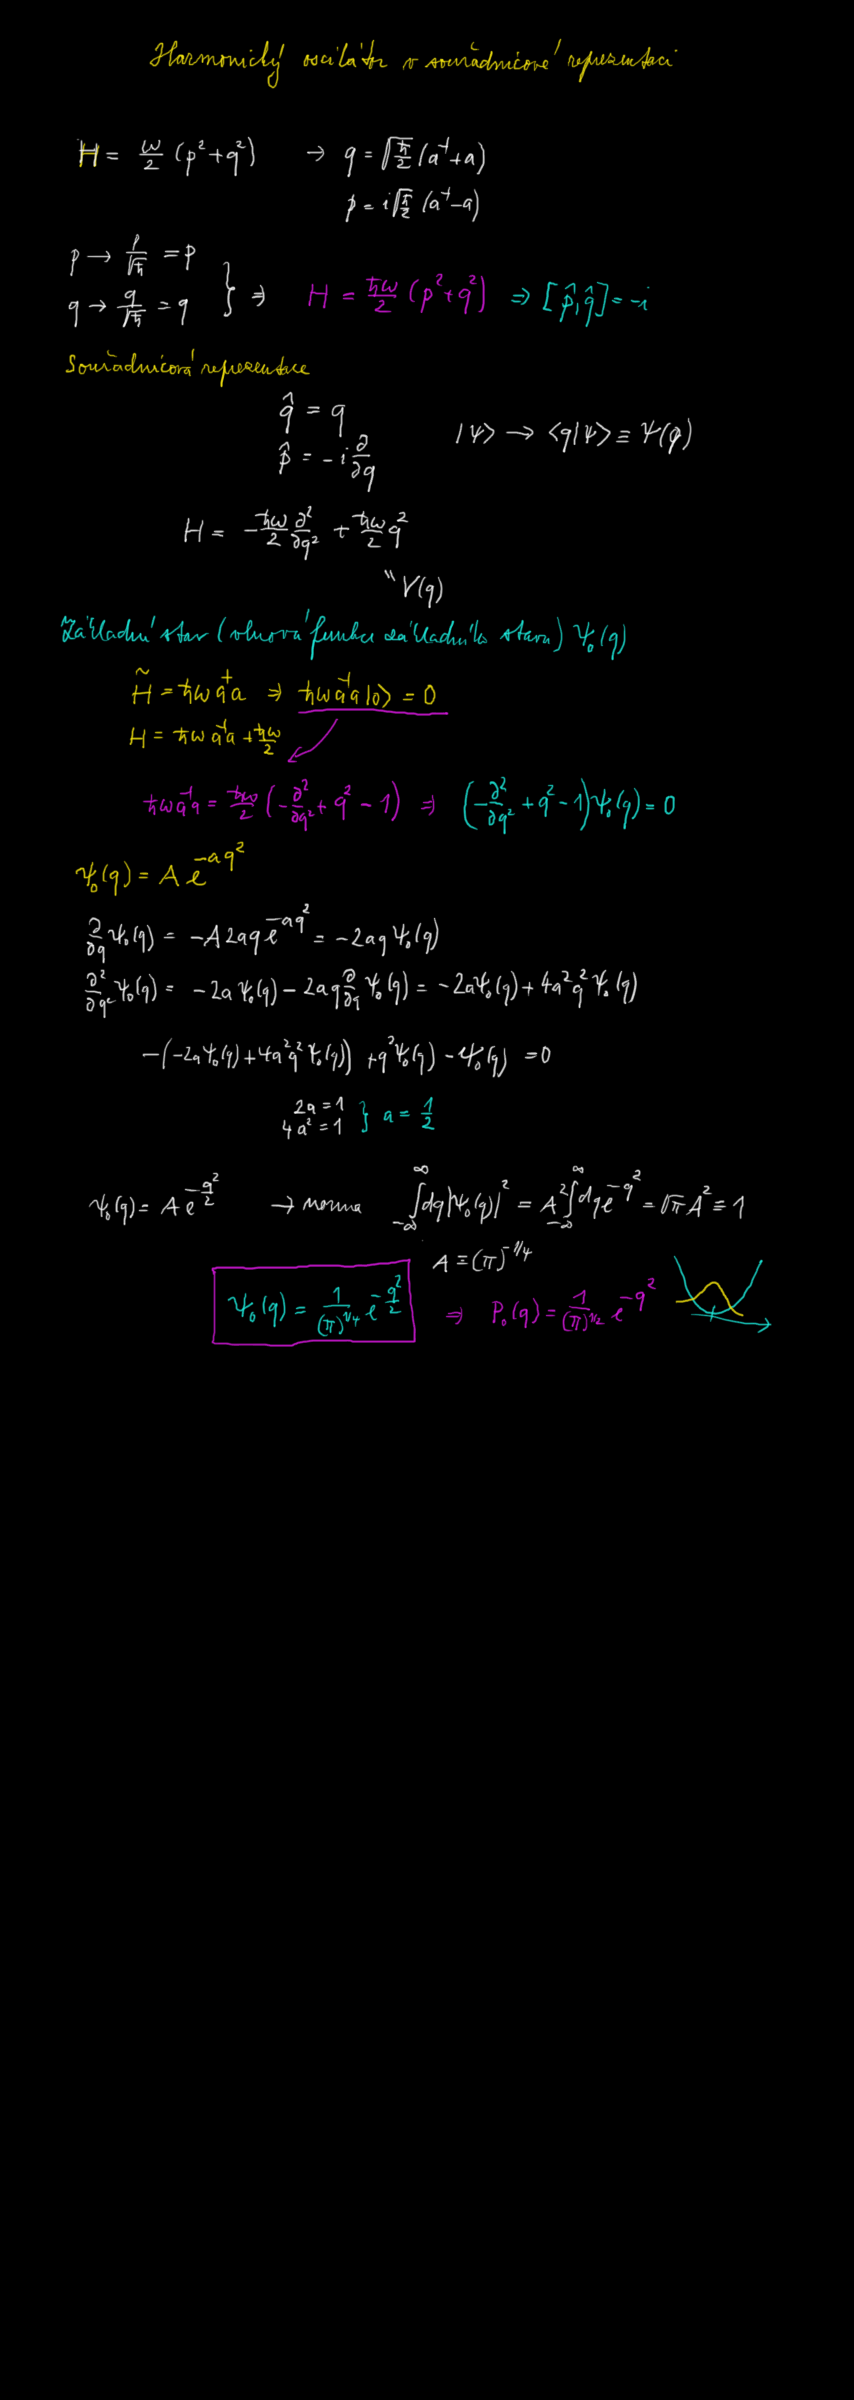 Harmonický oscilátor v souřadnicové reprezentaci
H = ω/2 (p² + q²) → q = √(ħ/2) (a⁺ + a)
p = i√(ħ/2) (a⁺ − a)
p → p/√ħ = p
q → q/√ħ = q } ⇒ H = ħω/2 (p² + q²) ⇒ [p̂, q̂] = −i
Souřadnicová reprezentace
q̂ = q
p̂ = −i ∂/∂q |ψ> → <q|ψ> ≡ ψ(q)
H = −ħω/2 ∂²/∂q² + ħω/2 q²
" V(q)
Základní stav (vlnová funkce základního stavu) ψ₀(q)
H̃ = ħω a⁺a ⇒ ħω a⁺a |0> = 0
H = ħω a⁺a + ħω/2
ħω a⁺a = ħω/2 (−∂²/∂q² + q² − 1) ⇒ (−∂²/∂q² + q² − 1) ψ₀(q) = 0
ψ₀(q) = A e^(−aq²)
∂/∂q ψ₀(q) = −A 2aq e^(−aq²) = −2aq ψ₀(q)
∂²/∂q² ψ₀(q) = −2a ψ₀(q) − 2aq ∂/∂q ψ₀(q) = −2aψ₀(q) + 4a²q² ψ₀(q)
−(−2aψ₀(q) + 4a²q² ψ₀(q)) + q²ψ₀(q) − ψ₀(q) = 0
2a = 1
4a² = 1 } a = 1/2
ψ₀(q) = A e^(−q²/2) → norma ∫_(−∞)^∞ dq |ψ₀(q)|² = A² ∫_(−∞)^∞ dq e^(−q²) = √π A² ≡ 1
A ≡ (π)^(−1/4)
ψ₀(q) = 1/(π)^(1/4) e^(−q²/2) ⇒ P₀(q) = 1/(π)^(1/2) e^(−q²)